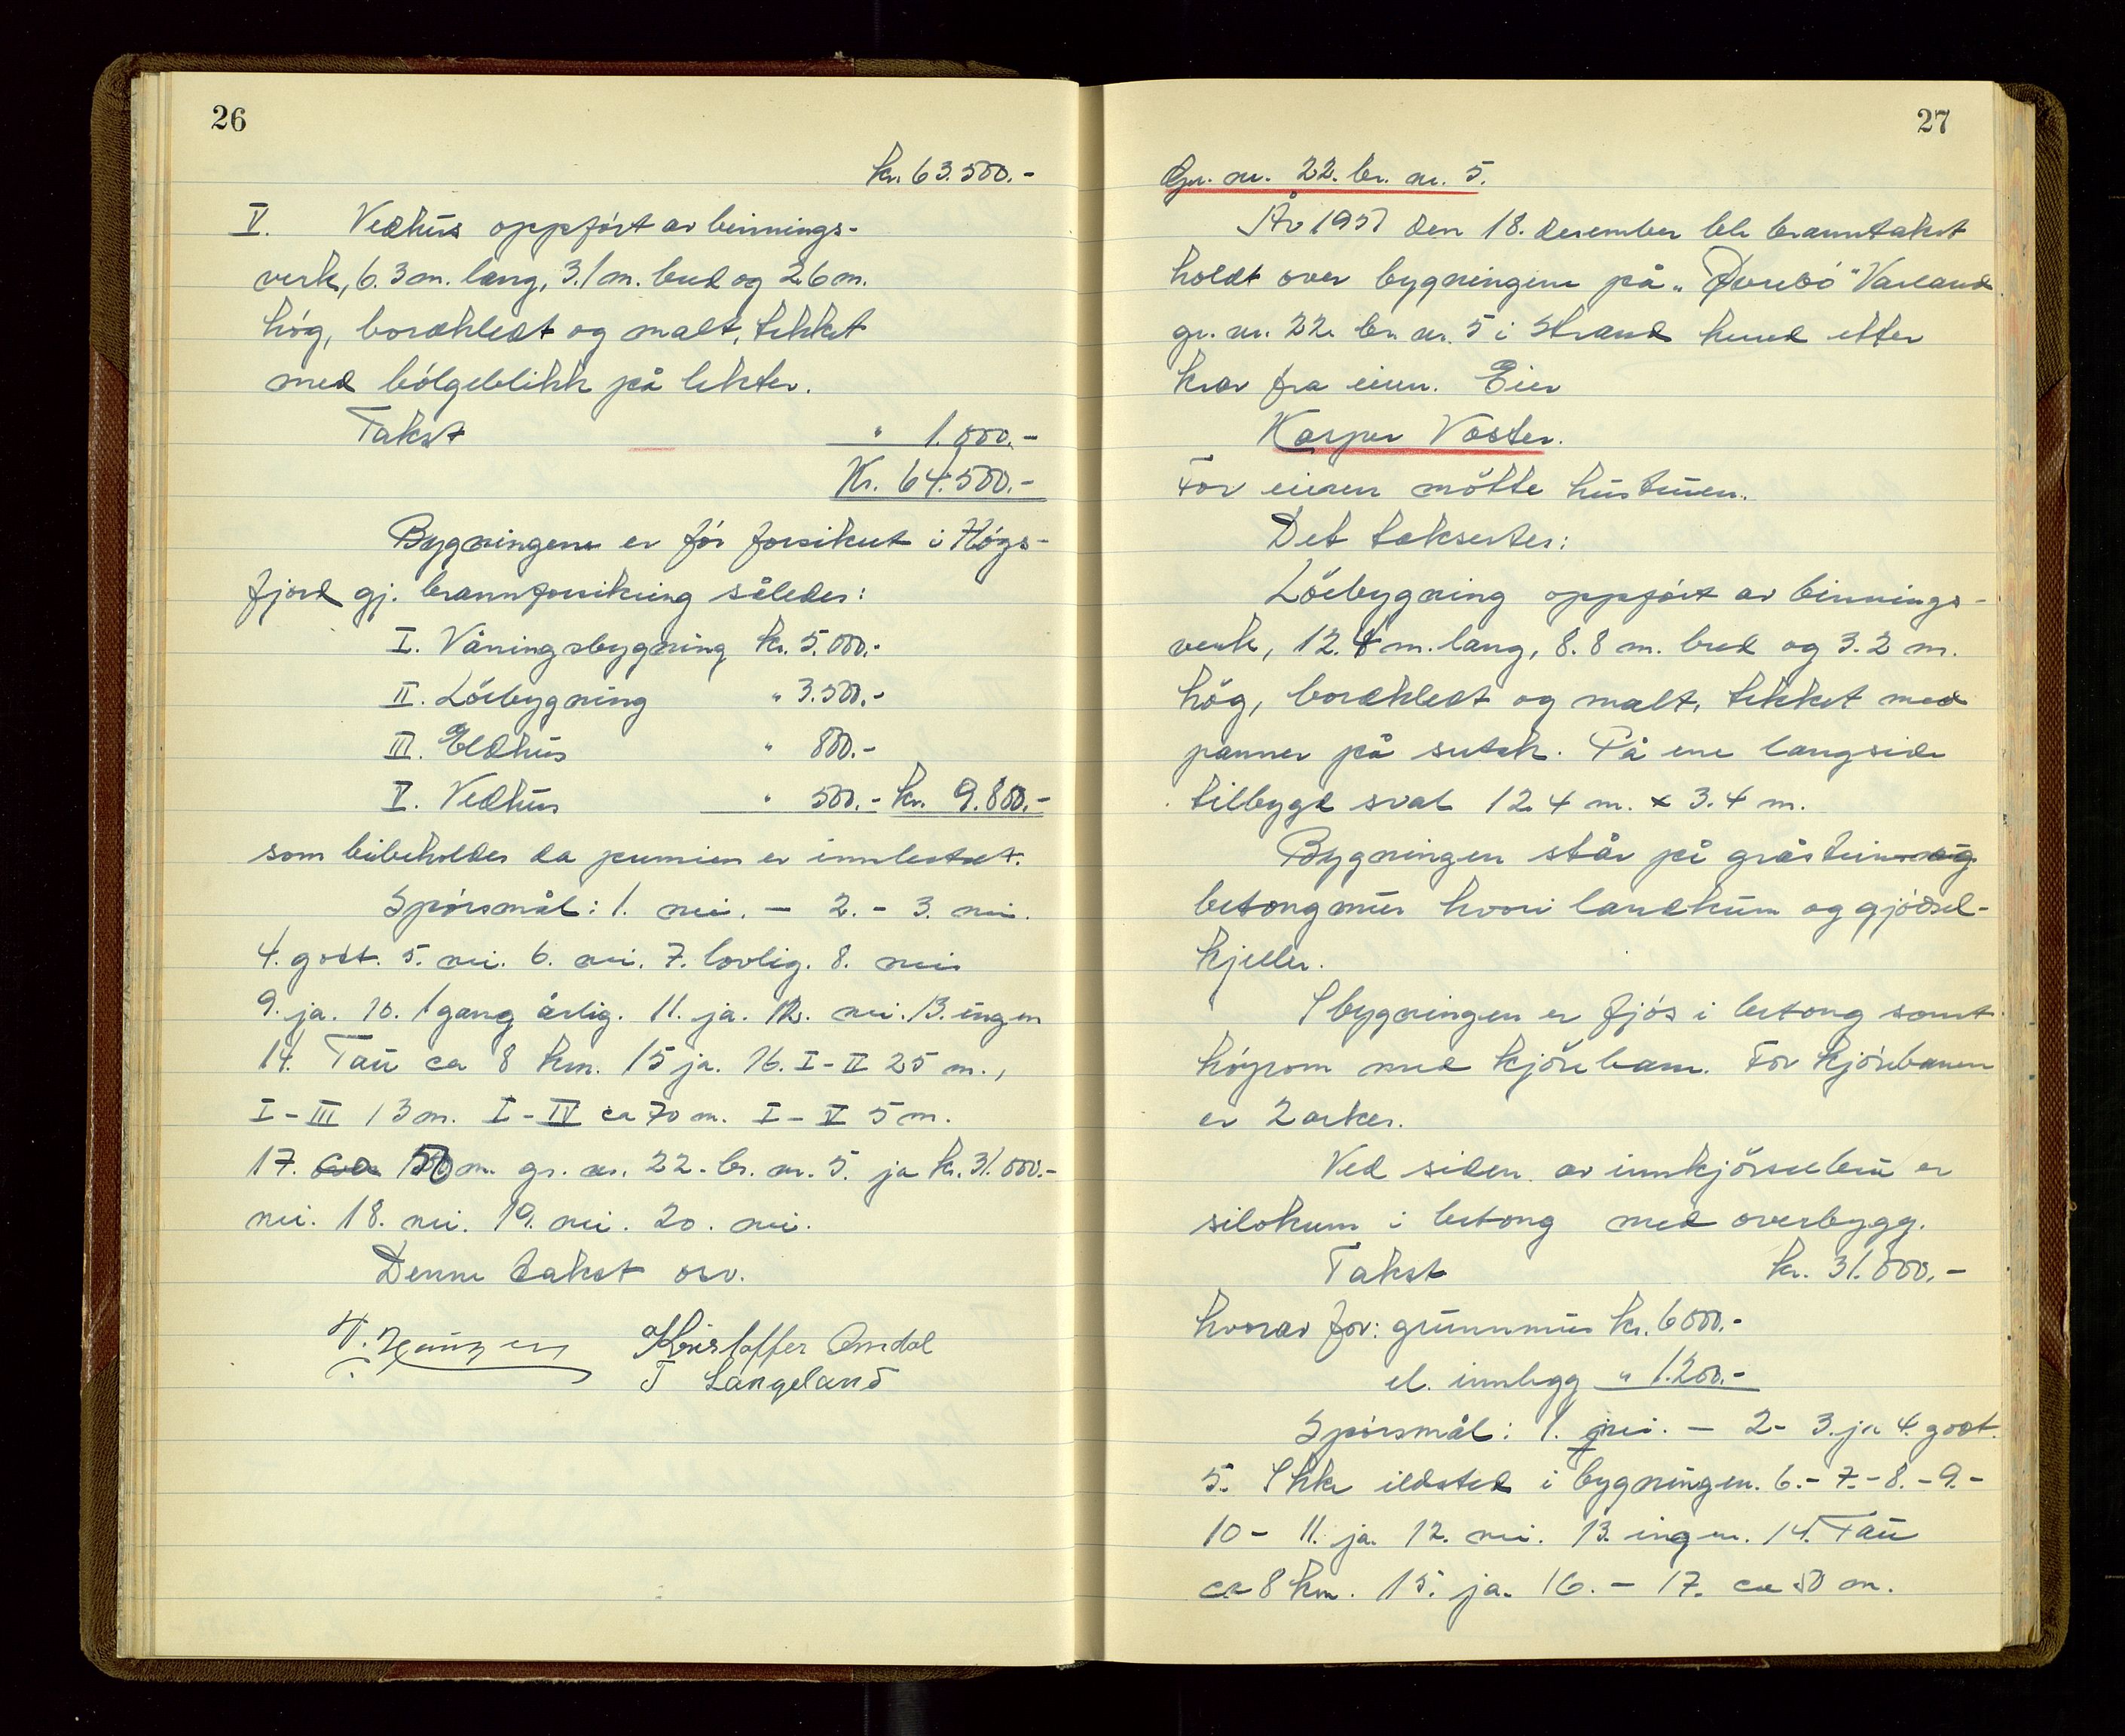 26
kr. 63.500.-
V. Vedhus oppført av binnings-
verk, 6.3 m. lang, 3.1 m. bred og 2.6 m.
høg, bordkledt og malt, tekket
med bølgeblikk på lekter.
Takst " 1.000.-
Kr. 64.500.-
Bygningene er før forsikret i Høgs-
fjord gj. brannforsikring således:
I. Våningsbygning kr. 5.000.-
II. Löebygning " 3.500.-
III. Eldhus " 800.-
V. Vedhus " 500.- kr. 9.800.-
som bibeholdes da premien er innbetalt.
Spørsmål: 1. nei. - 2. - 3. nei.
4. godt. 5. nei. 6. nei. 7. lovlig. 8. nei
9. ja. 10. 1 gang årlig. 11. ja. 12. nei. 13. ingen
14. Tau ca 8 km. 15 ja. 16. I - II 25 m.,
I - III 13 m. I - IV ca 70 m. I - V 5 m.
17. 50 m. gr. nr. 22. br. nr. 5. ja kr. 31.000.-
nei. 18. nei. 19. nei. 20. nei.
Denne takst osv.
Kristoffer Omdal
T Langeland
27
Gr. nr. 22. br. nr. 5.
År 1957 den 18. desember ble branntakst
holdt over bygningene på " " Varland
gr. nr. 22 br. nr. 5 i Strand herred etter
krav fra eieren. Eier
Kasper Voster.
For eieren møtte hustruen.
Det taksertes:
Löebygning oppført av binnings-
verk, 12.4 m. lang, 8.8 m. bred og 3.2 m.
høg, bordkledt og malt, tekket med
panner på sutak. På ene langside
tilbygd sval 12.4 m. x 3.4 m.
Bygningen står på gråsteins og
betongmur hvori landkum og gjødsel-
kjeller.
I bygningen er fjøs i betong samt
høyrom med kjørebane. For kjørebanen
er 2 arker.
Ved siden av innkjørselbru er
silokum i betong med overbygg.
Takst kr. 31.000.-
hvorav for: grunnmur kr. 6000.-
el. innlegg " 1.200.-
Spørsmål: 1. nei. - 2 - 3. ja 4. godt.
5. Ikke ildsted i bygningen. 6. - 7. - 8. - 9. -
10 - 11. ja. 12. nei. 13. ingen. 14. Tau
ca 8 km. 15. ja. 16. - 17. ca 50 m.